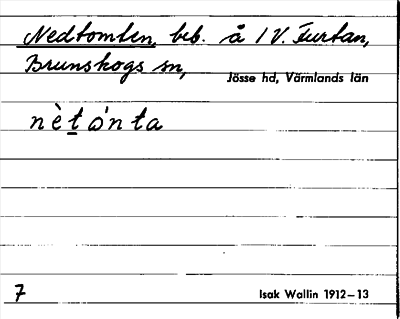 Nedtomten, beb. å /V. Furtan,
Brunskogs sn,
Jösse hd, Värmlands län
nètὼnta
7
Isak Wallin 1912–13